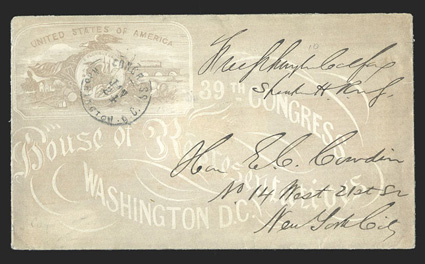 UNITED STATES OF AMERICA
Free Schuyler Colfax
Speaker H. Rep.
39TH CONGRESS
House of Representatives
WASHINGTON D.C.
Hon E.C. Cowdin
No 14 West 21st St
New York City